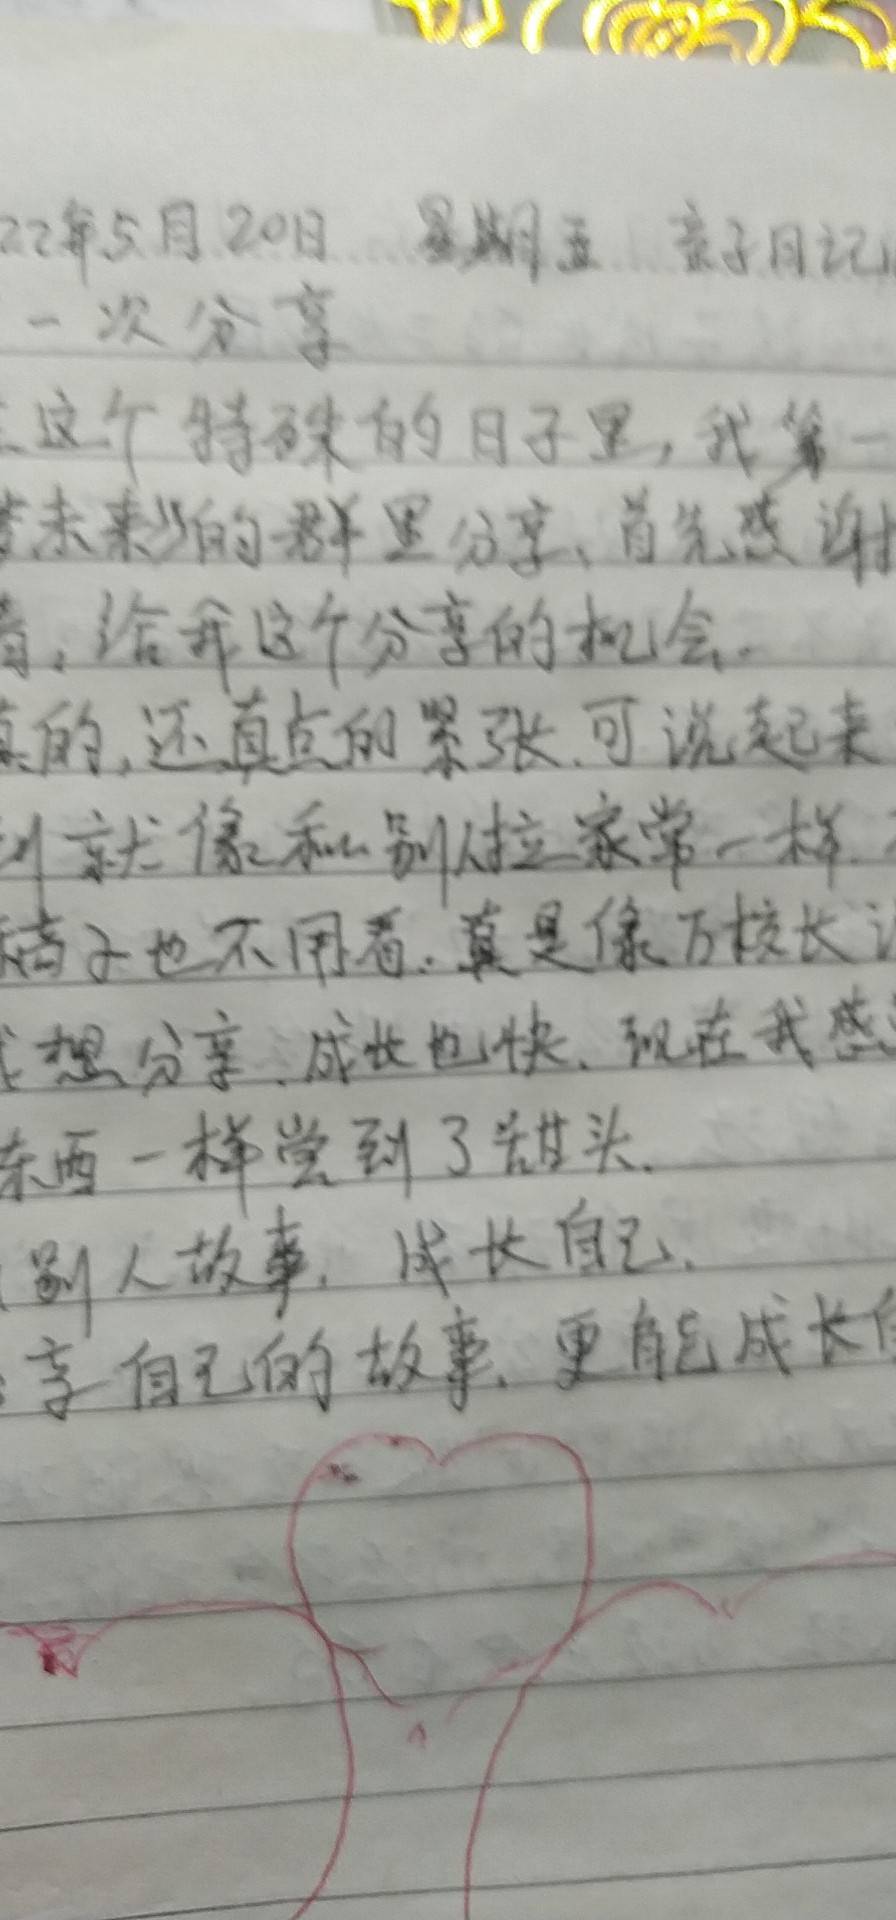 22年5月20日 星期五 亲子日记
一次分享
这个特殊的日子里,我第一
未来”的群里分享、首先感谢
,给我这个分享的机会.
真的,还真点的紧张.可说起来
就像和别人拉家常一样.
稿子也不用看.真是像万校长
想分享.成长也快.现在我感
东西一样尝到了甜头.
别人故事.成长自己.
享自己的故事.更能成长自